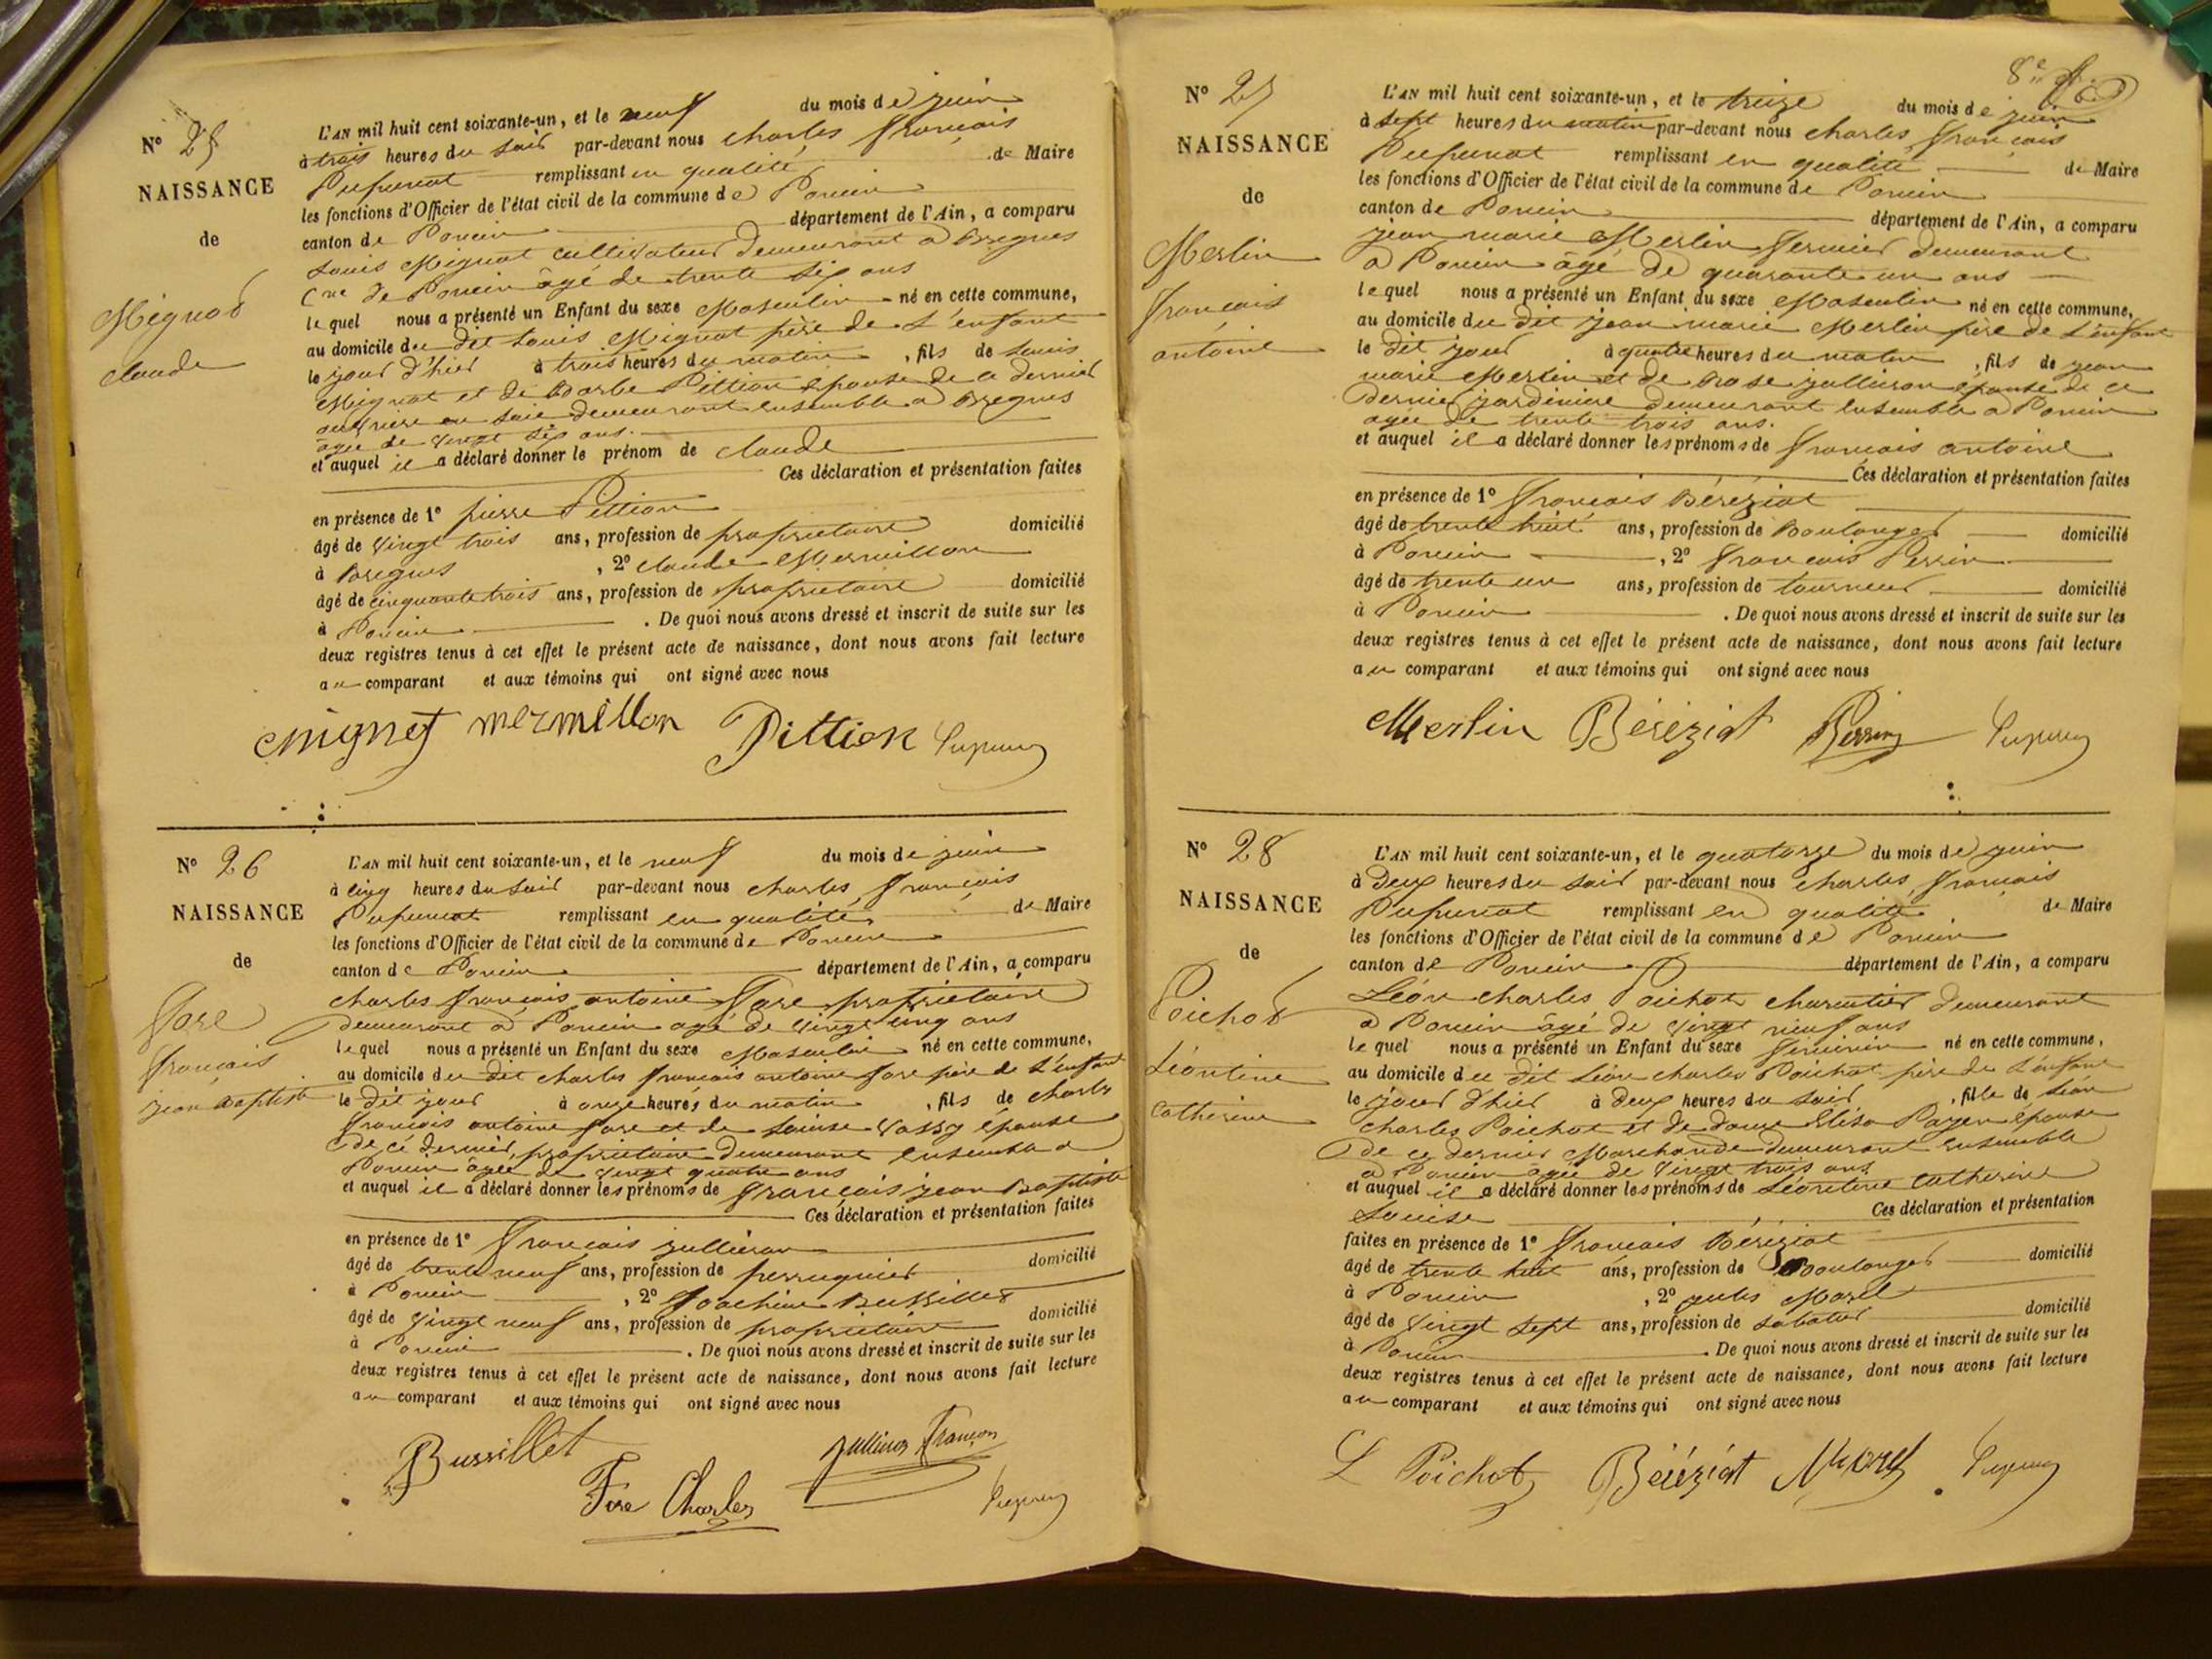 N° 25
NAISSANCE
de
Mignat
claude
L'AN mil huit cent soixante-un, et le neuf du mois de juin
à trois heures du soir par-devant nous charles françois
Pupunat remplissant en qualité de Maire
les fonctions d'Officier de l'état civil de la commune de Poncin
canton de Poncin département de l'Ain, a comparu
Louis Mignat cultivateur demeurant a Bregnes
Cne de Poncin âgé de trente six ans
lequel nous a présenté un Enfant du sexe Masculin né en cette commune,
au domicile du dit Louis Mignat père de L'enfant
le jour d'hier à trois heures du matin, fils de Louis
Mignat et de Barbe Pittion épouse de ce dernier
ouvrière en soie demeurant ensemble a Bregnes
agée de vingt six ans.
et auquel il a déclaré donner le prénom de claude
Ces déclaration et présentation faites
en présence de 1° pierre Pittion
âgé de vingt trois ans, profession de propriétaire domicilié
à Bregnes, 2° claude Mermillon
âgé de cinquante trois ans, profession de propriétaire domicilié
à Poncin. De quoi nous avons dressé et inscrit de suite sur les
deux registres tenus à cet effet le présent acte de naissance, dont nous avons fait lecture
au comparant et aux témoins qui ont signé avec nous
mignat mermillon Pittion Pupunat
N° 26
NAISSANCE
de
Fore
françois
jean Baptiste
L'AN mil huit cent soixante-un, et le neuf du mois de juin
à cinq heures du soir par-devant nous charles françois
Pupunat remplissant en qualité de Maire
les fonctions d'Officier de l'état civil de la commune de Poncin
canton de Poncin département de l'Ain, a comparu
charles françois antoine Fore propriétaire
demeurant a Poncin agé de vingt cinq ans
lequel nous a présenté un Enfant du sexe Masculin né en cette commune,
au domicile du dit charles françois antoine fore père de L'enfant
le dit jour à onze heures du matin, fils de charles
françois antoine fore et de Louise Vassy épouse
de ce dernier, propriétaire demeurant ensemble a
Poncin âgée de vingt quatre ans
et auquel il a déclaré donner les prénoms de françois jean Baptiste
Ces déclaration et présentation faites
en présence de 1° françois jullieron
âgé de trente neuf ans, profession de perruquier domicilié
à Poncin, 2° Joachim Bussillet
âgé de vingt neuf ans, profession de propriétaire domicilié
à Poncin. De quoi nous avons dressé et inscrit de suite sur les
deux registres tenus à cet effet le présent acte de naissance, dont nous avons fait lecture
au comparant et aux témoins qui ont signé avec nous
Bussillet Fore Charles françois Pupunat
8e
N° 27
NAISSANCE
de
Merlin
françois
antoine
L'AN mil huit cent soixante-un, et le treize du mois de juin
à sept heures du matin par-devant nous charles françois
Pupunat remplissant en qualité de Maire
les fonctions d'Officier de l'état civil de la commune de Poncin
canton de Poncin département de l'Ain, a comparu
jean marie Merlin fermier demeurant
a Poncin âgé de quarante un ans
lequel nous a présenté un Enfant du sexe Masculin né en cette commune,
au domicile du dit jean marie Merlin père de L'enfant
le dit jour à quatre heures du matin, fils de jean
marie Merlin et de Rose jullieron épouse de ce
dernier jardinière demeurant ensemble a Poncin
agée de trente trois ans.
et auquel il a déclaré donner les prénoms de françois antoine
Ces déclaration et présentation faites
en présence de 1° françois Béréziat
âgé de trente huit ans, profession de Boulanger domicilié
à Poncin, 2° françois Perrin
âgé de trente un ans, profession de tourneur domicilié
à Poncin. De quoi nous avons dressé et inscrit de suite sur les
deux registres tenus à cet effet le présent acte de naissance, dont nous avons fait lecture
au comparant et aux témoins qui ont signé avec nous
Merlin Béréziat Perrin Pupunat
N° 28
NAISSANCE
de
Poichot
Léontine
Catherine
L'AN mil huit cent soixante-un, et le quatorze du mois de juin
à deux heures du soir par-devant nous charles françois
Pupunat remplissant en qualité de Maire
les fonctions d'Officier de l'état civil de la commune de Poncin
canton de Poncin département de l'Ain, a comparu
Léon charles Poichot demeurant
a Poncin âgé de vingt neuf ans
lequel nous a présenté un Enfant du sexe féminin né en cette commune,
au domicile du dit Léon charles Poichot père de L'enfant
le jour d'hier à deux heures du soir, fille de Léon
charles Poichot et de dame Elisa Payen épouse
de ce dernier Marchande demeurant ensemble
a Poncin âgée de vingt trois ans
et auquel il a déclaré donner les prénoms de Léontine Catherine
Louise Ces déclaration et présentation
faites en présence de 1° françois Béréziat
âgé de trente huit ans, profession de Boulanger domicilié
à Poncin, 2° jules Morel
âgé de vingt sept ans, profession de sabotier domicilié
à Poncin. De quoi nous avons dressé et inscrit de suite sur les
deux registres tenus à cet effet le présent acte de naissance, dont nous avons fait lecture
au comparant et aux témoins qui ont signé avec nous
L Poichot Béréziat Morel Pupunat